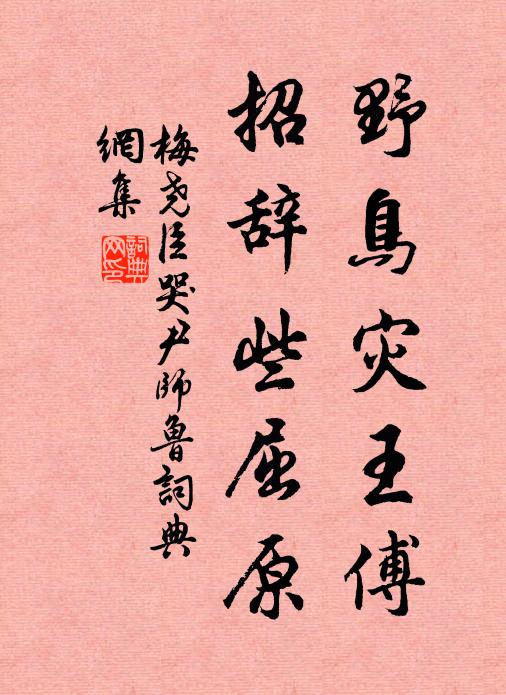 野鳥灾王傅
招辞些屈原
梅尧臣哭尹師魯詞典
網集
詞典网印